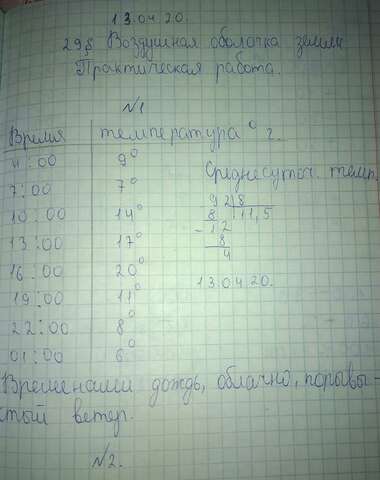 13.04.20.
29§ Воздушная оболочка земли
Практическая работа.
№1
Время температура° г.
4:00 9°
7:00 7°
10:00 14°
13:00 17°
16:00 20°
19:00 11°
22:00 8°
01:00 6°
Среднесуточ. темп.
92|8
8 |11,5
-12
8
4
13.04.20.
Временами дождь, облачно, порывы-
стый ветер.
№2.